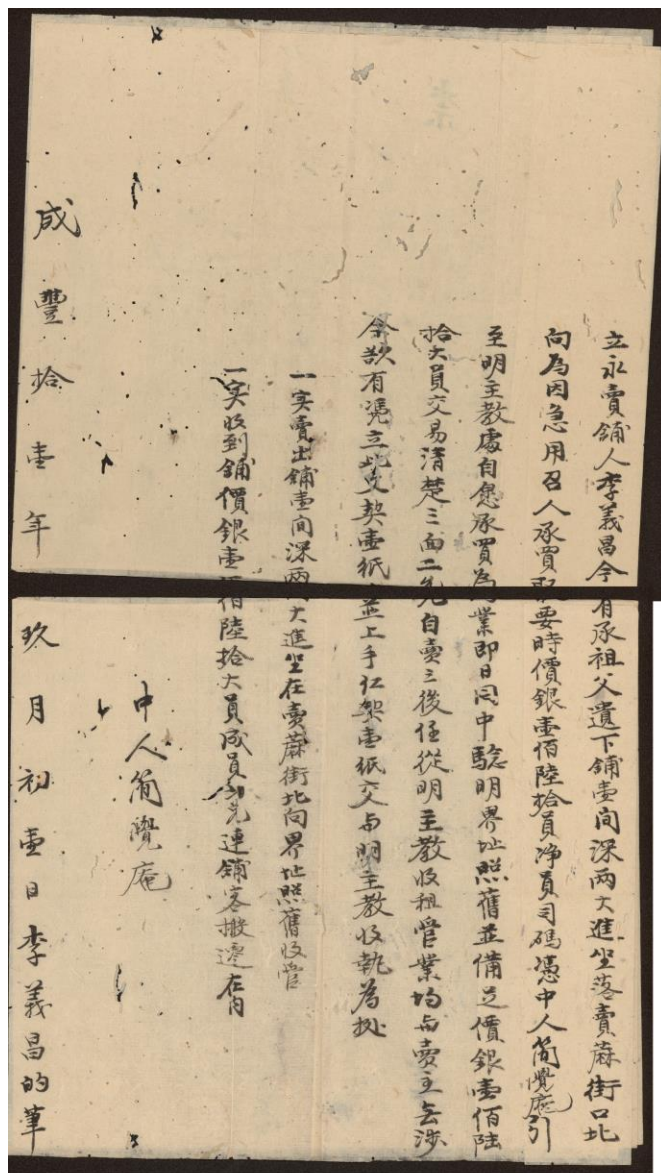 立永賣鋪人李義昌今有承祖父遺下鋪壹间深两大進坐落賣蔴街口北
向為因急用召人承買取要時價銀壹佰陸拾員净員司碼憑中人簡覺庵引
至明主教處自愿承買為業即日同中驗明界址照舊並備足價銀壹佰陸
拾大員交易清楚三面二允自賣之後任從明主教收租管業均与賣主無涉
今欲有凴立此文契壹纸並上手仁契壹纸交与明主教收執為拠
一实賣出鋪壹间深两大進坐在賣蔴街北向界址照舊收管
一实收到鋪價銀壹佰陸拾大員成員知先連鋪客搬遷在内
中人簡覺庵
咸豐拾壹年玖月初壹日李義昌的筆